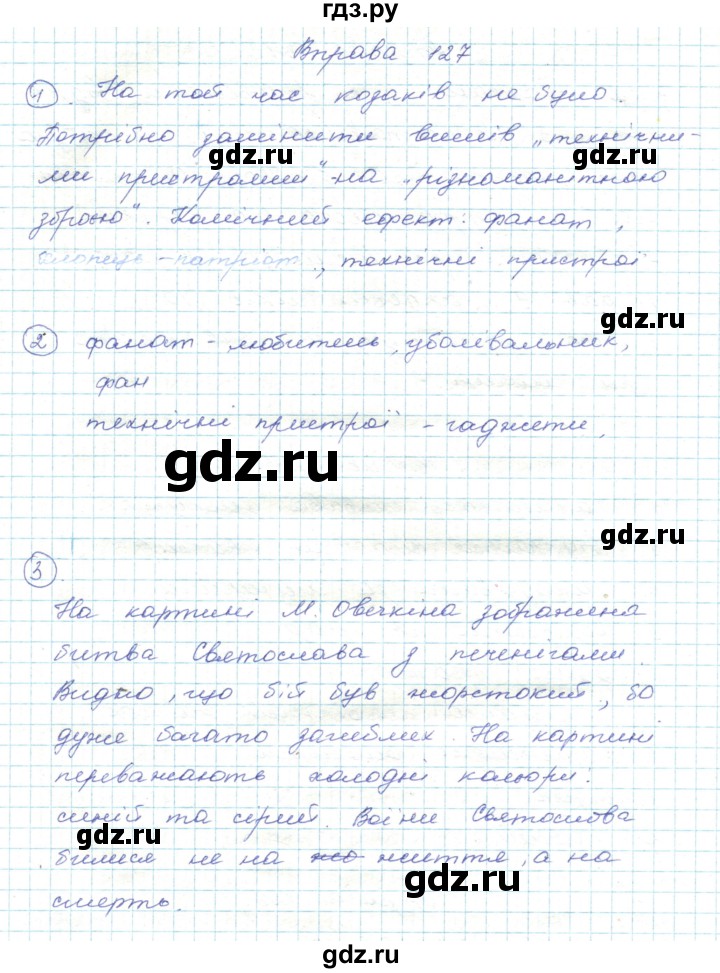 гдз.ру
Вправа 127
1. На той час козаків не було.
Потрібно замінити вислів „технічни-
ми пристроями" - на „різноманітною
зброєю". Комічний ефект: фанат,
хлопець-патріот, технічні пристрої
gdz.ru
gdz.ru
gdz.ru
2 фанат - любитель, уболівальник,
фан
технічні пристрої - гаджети,
gdz.ru
gdz.ru
3.
На картині М. Овечкіна зображена
битва Святослава з печенігами.
gdz.ru
Видно, що бій був жорстокий, бо
дуже багато загиблих. На картині
gdz.ru
переважають холодні кольори:
синій та сірий. Воїни Святослава
gdz.ru
билися не на жо життя, а на
gdz.ru
смерть.
gdz.ru